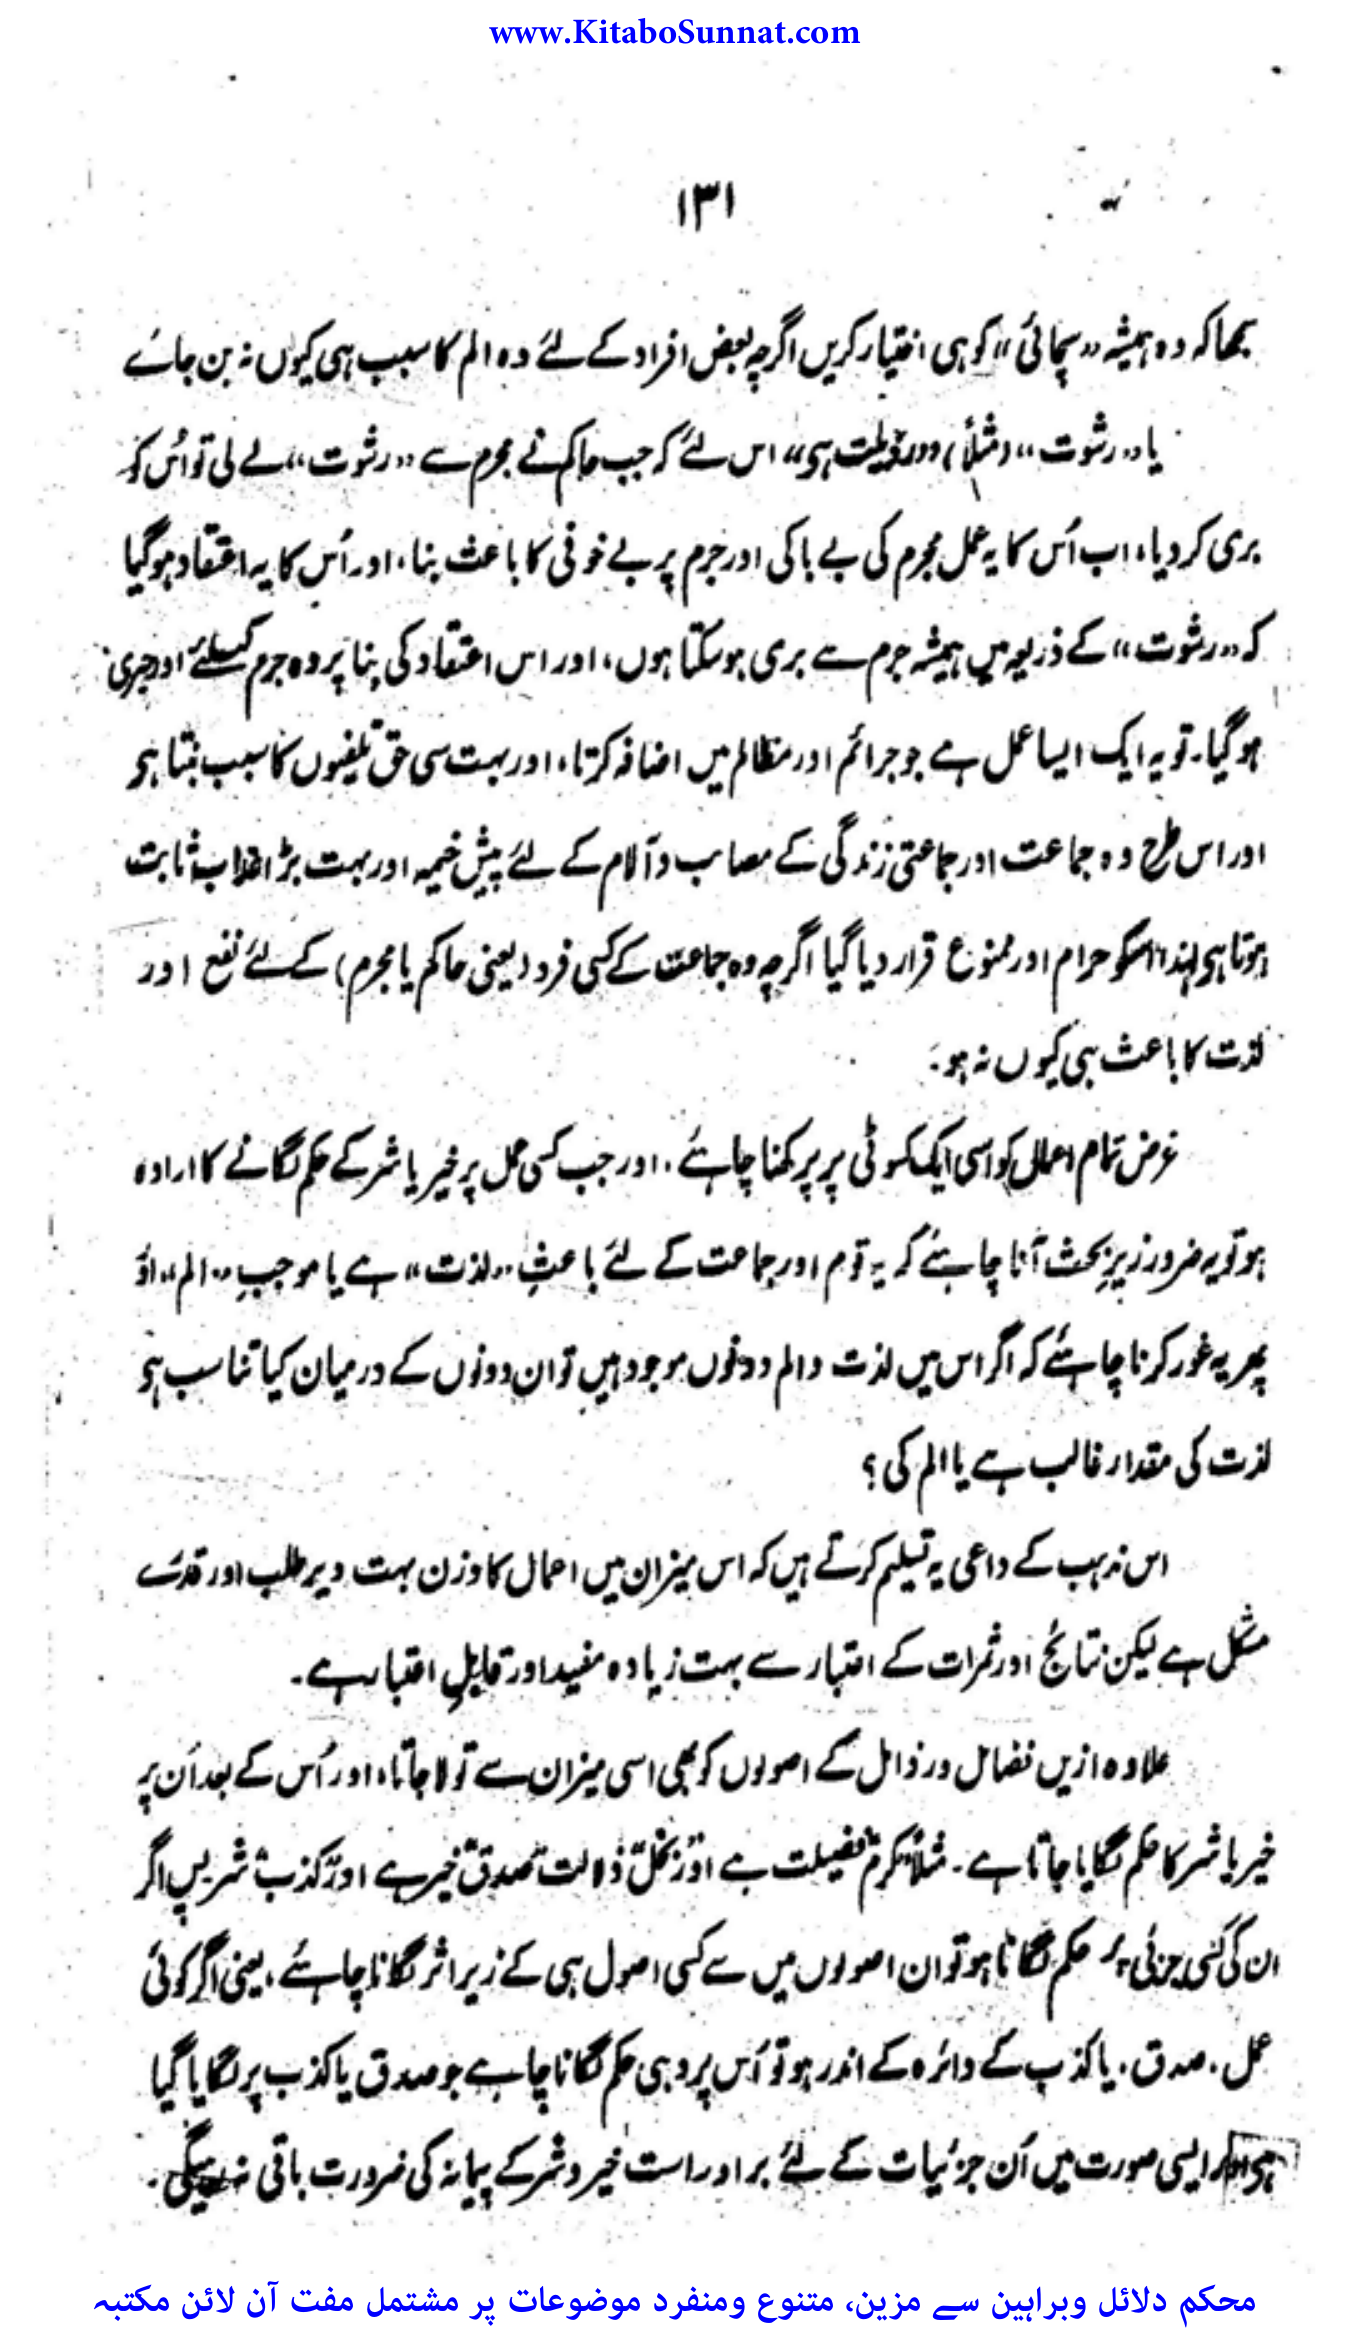 www.KitaboSunnat.com
۱۳۱
سمجھا کہ وہ ہمیشہ "سچائی" کو ہی اختیار کریں اگرچہ بعض افراد کے لئے وہ الم کا سبب ہی کیوں نہ بن جائے
یا "رشوت" (مثلاً) "رذیلت ہی" اس لئے کہ جب حاکم نے مجرم سے "رشوت" لے لی تو اُس کو
بری کر دیا، اب اُس کا یہ عمل مجرم کی بے باکی اور جرم پر بے خوفی کا باعث بنا، اور اُس کا یہ اعتقاد ہو گیا
کہ "رشوت" کے ذریعہ میں ہمیشہ جرم سے بری ہو سکتا ہوں، اور اس اعتقاد کی بنا پر وہ جرم کیلئے اور جری
ہو گیا۔ تو یہ ایک ایسا عمل ہے جو جرائم اور مظالم میں اضافہ کرتا، اور بہت سی حق تلفیوں کا سبب بنتا ہی
اور اس طرح وہ جماعت اور جماعتی زندگی کے مصائب وآلام کے لئے پیش خیمہ اور بہت بڑا عذاب ثابت
ہوتا ہی لہٰذا اسکو حرام اور ممنوع قرار دیا گیا اگرچہ وہ جماعت کے کسی فرد (یعنی حاکم یا مجرم) کے لئے نفع اور
لذت کا باعث ہی کیوں نہ ہو۔
غرض تمام اعمال کو اسی ایک کسوٹی پر پرکھنا چاہئے، اور جب کسی عمل پر خیر یا شر کے حکم لگانے کا ارادہ
ہو تو یہ ضرور زیرِ بحث آنا چاہئے کہ یہ قوم اور جماعت کے لئے باعثِ "لذت" ہے یا موجبِ "الم" اور
پھر یہ غور کرنا چاہئے کہ اگر اس میں لذت و الم دونوں موجود ہیں تو ان دونوں کے درمیان کیا تناسب ہی
لذت کی مقدار غالب ہے یا الم کی؟
اس مذہب کے داعی یہ تسلیم کرتے ہیں کہ اس میزان میں اعمال کا وزن بہت دیر طلب اور قدرے
مشکل ہے لیکن نتائج اور ثمرات کے اعتبار سے بہت زیادہ مفید اور قابلِ اعتبار ہے۔
علاوہ ازیں فضائل و رذائل کے اصولوں کو بھی اسی میزان سے تولا جاتا، اور اُس کے بعد اُن پر
خیر یا شر کا حکم لگایا جاتا ہے۔ مثلاً "کرم" فضیلت ہے اور "بخل" ذلالت "صدق" خیر ہے اور "کذب" شر پس اگر
ان کی کسی جزئی پر حکم لگانا ہو تو ان اصولوں میں سے کسی اصول ہی کے زیر اثر لگانا چاہئے، یعنی اگر کوئی
عمل، صدق، یا کذب کے دائرہ کے اندر ہو تو اُس پر وہی حکم لگانا چاہے جو صدق یا کذب پر لگایا گیا
ہی اور ایسی صورت میں اُن جزئیات کے لئے براہ راست خیر و شر کے پیمانہ کی ضرورت باقی نہ رہیگی۔
محکم دلائل وبراہین سے مزین، متنوع ومنفرد موضوعات پر مشتمل مفت آن لائن مکتبہ